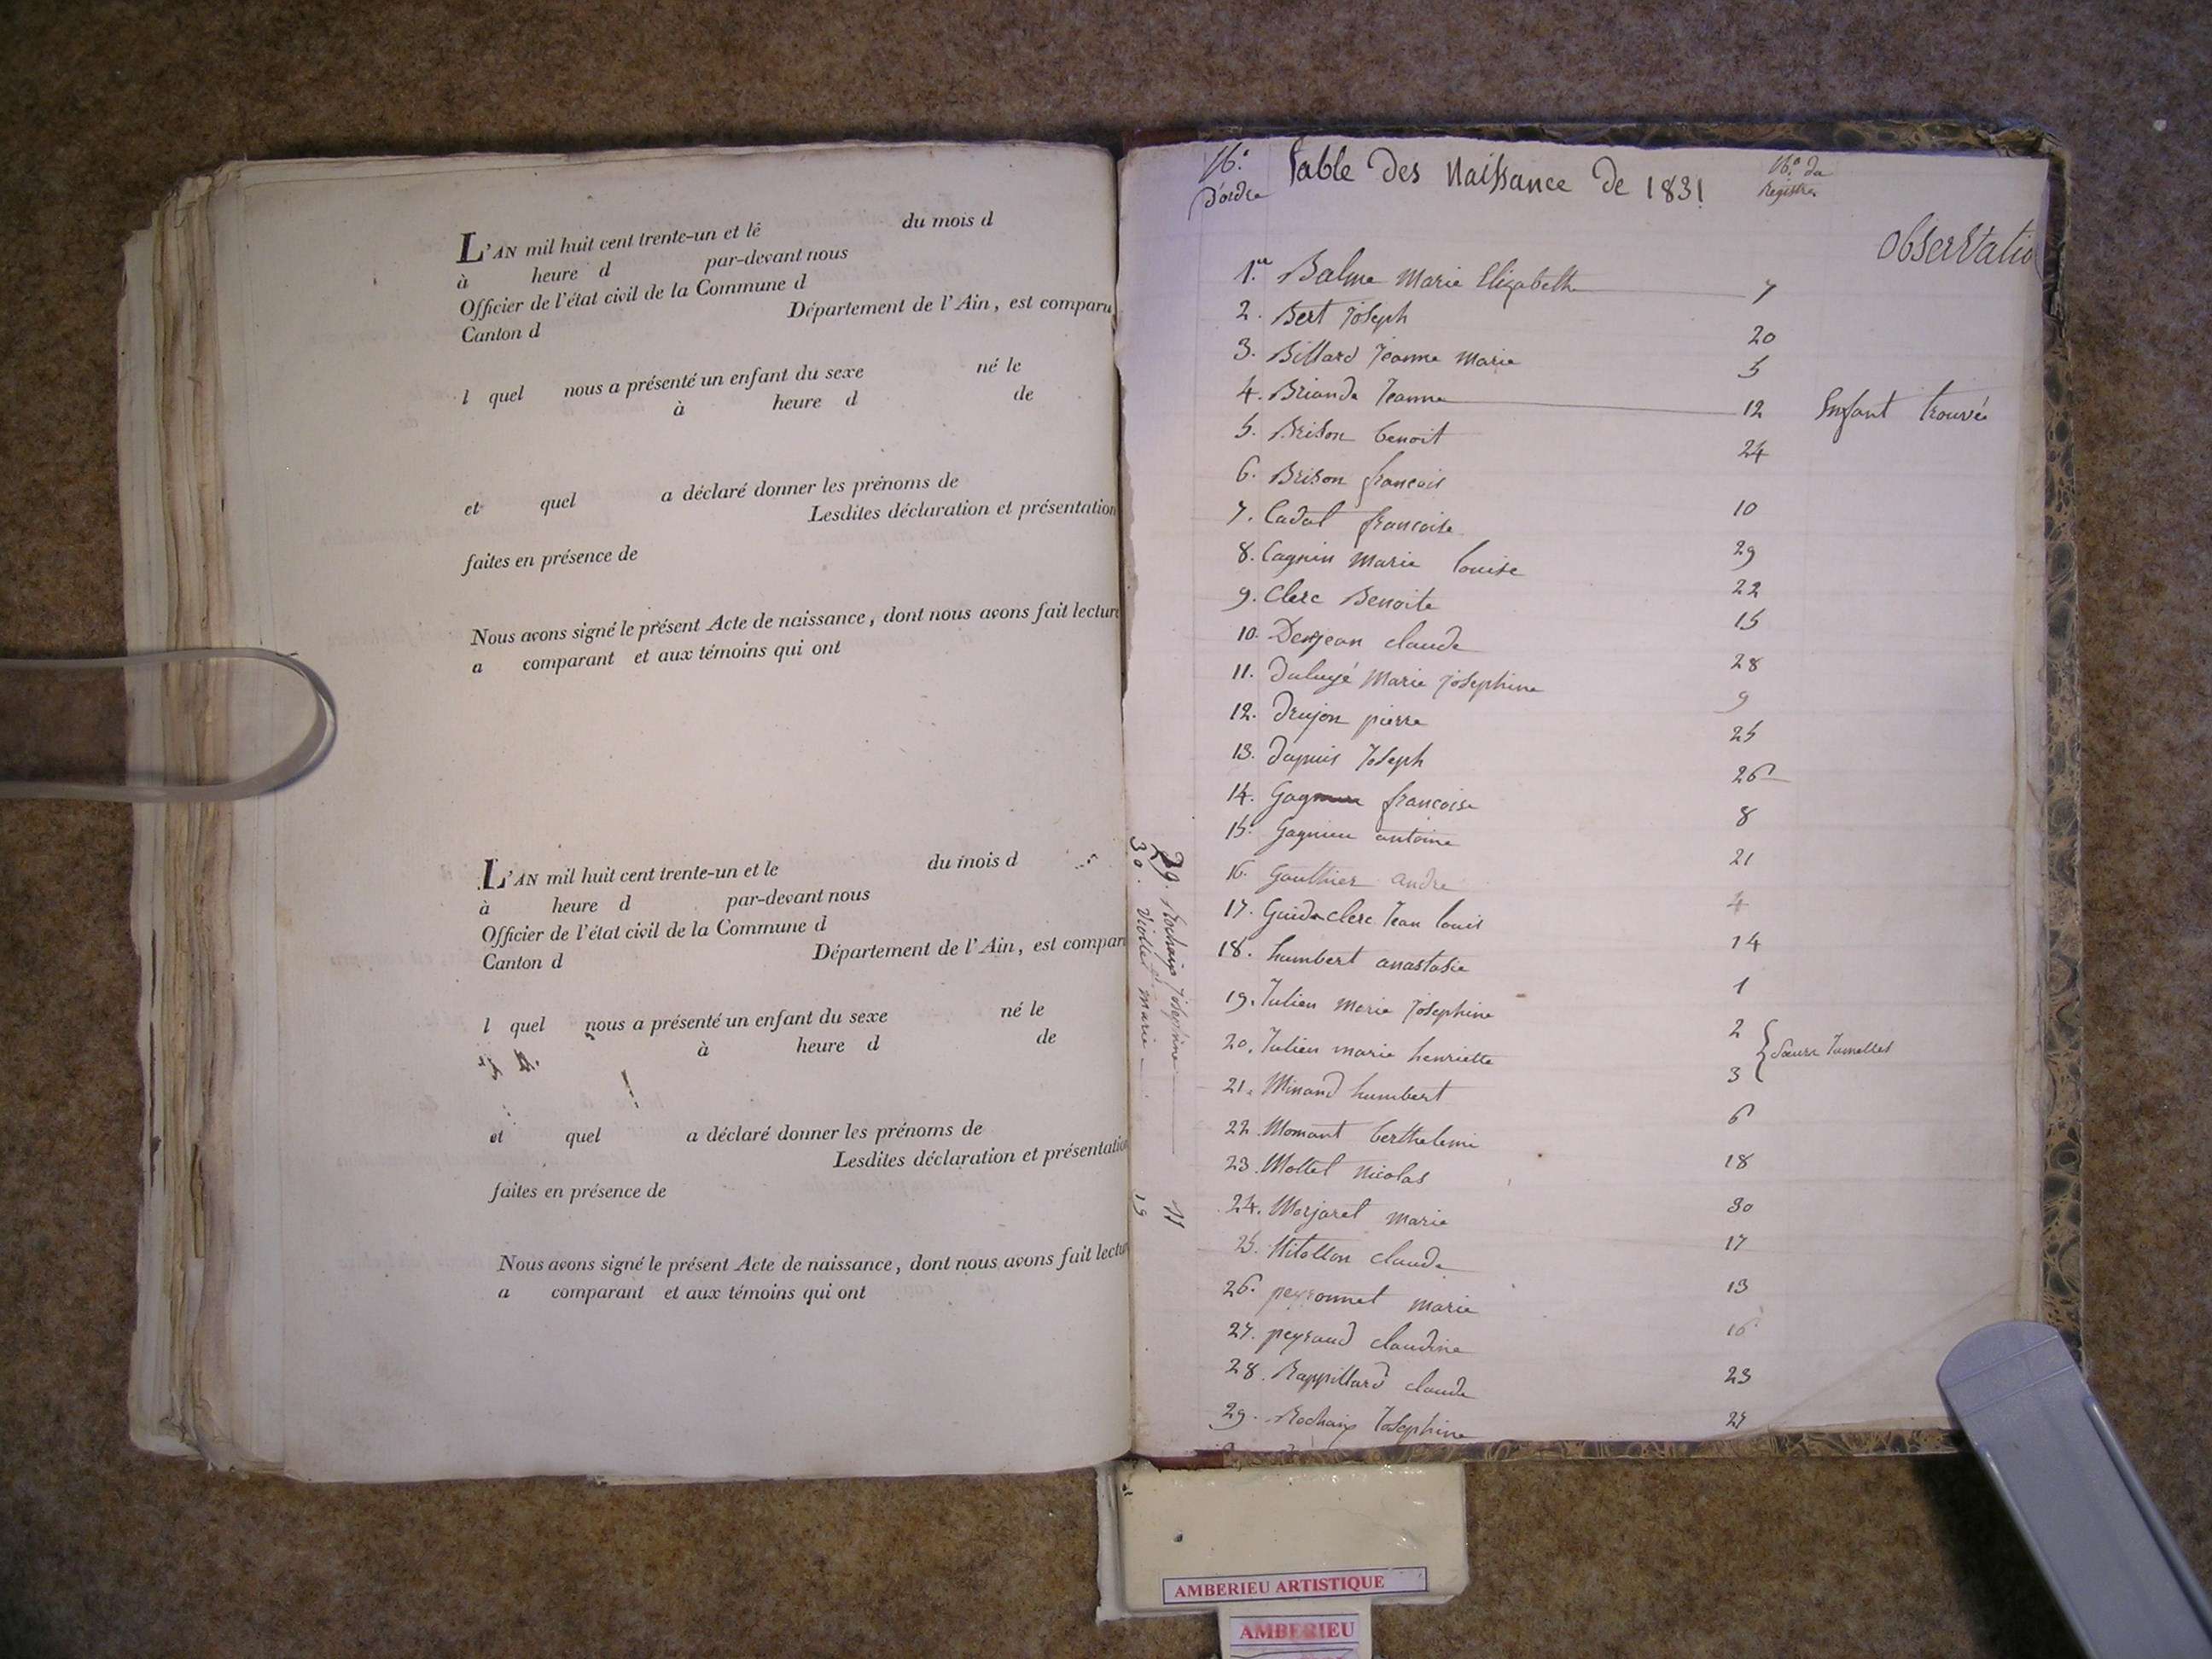 L'AN mil huit cent trente-un et le du mois d
à heure d par-devant nous
Officier de l'état civil de la Commune d
Canton d Département de l'Ain, est comparu
l quel nous a présenté un enfant du sexe né le
à heure d de
et quel a déclaré donner les prénoms de
Lesdites déclaration et présentation
faites en présence de
Nous avons signé le présent Acte de naissance, dont nous avons fait lecture
a comparant et aux témoins qui ont
L'AN mil huit cent trente-un et le du mois d
à heure d par-devant nous
Officier de l'état civil de la Commune d
Canton d Département de l'Ain, est compar
l quel nous a présenté un enfant du sexe né le
à heure d de
et quel a déclaré donner les prénoms de
Lesdites déclaration et présentatio
faites en présence de
Nous avons signé le présent Acte de naissance, dont nous avons fait lectu
a comparant et aux témoins qui ont
N.o d'ordre Table des Naissance de 1831 N.o du Registre
Observatio
1. Balme Marie Elizabeth 7
2. Bert Joseph 20
3. Billard Jeanne Marie 5
4. Brianda Jeanne 12 Enfant trouvée
5. Brison benoit 24
6. Brison francois 10
7. Cadot francoise 29
8. Cagnin Marie louise 22
9. Clerc Benoite 15
10. Denjean claude 28
11. Marie josephine 9
12. drujon pierre 25
13. dupuis Joseph 26
14. francoise 8
15. Gagnieu antoine 21
16. Gauthier andré 4
17. Guide clerc Jean louis 14
18. humbert anastasie 1
19. Julien Marie Josephine 2
20. Julien marie henriette 3 Sœurs Jumelles
21. Minand humbert 6
22. Momant berthelemi 18
23. Mollet Nicolas 30
24. Morjaret marie 17
25. claude 13
26. peyronnet marie 16
27. peyraud claudine 23
28. Rappillard claude 27
29. Rochaix Josephine
29. Rochaix Josephine 11
30. Viollet marie 19
AMBERIEU ARTISTIQUE
AMBERIEU